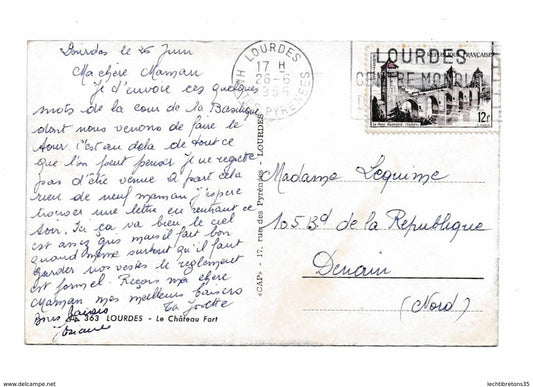 Lourdes le 26 Juin
Ma chère Maman
Je t'envoie ces quelques
mots de la cour de la Basilique
dont nous venons de faire le
tour. C'est au delà de tout ce
que l'on peut penser je ne regrette
pas d'être venue à part cela
rien de neuf maman j'espère
trouver une lettre en rentrant ce
soir. Ici ça va bien le ciel
est assez gris mais il fait bon
quand même surtout qu'il faut
garder nos vestes le règlement
est formel. Reçois ma chère
Maman mes meilleurs baisers
ta Josette
Bons baisers
Josiane
363 LOURDES - Le Château Fort
«CAP» - 17, rue des Pyrénées - LOURDES
LOURDES
17 H
26-6
PYRENEES
LOURDES
CENTRE MONDIAL
12F
Madame Lequime
105 Bd de la République
Denain
(Nord)
https://www.delcampe.net
lechtibretons35